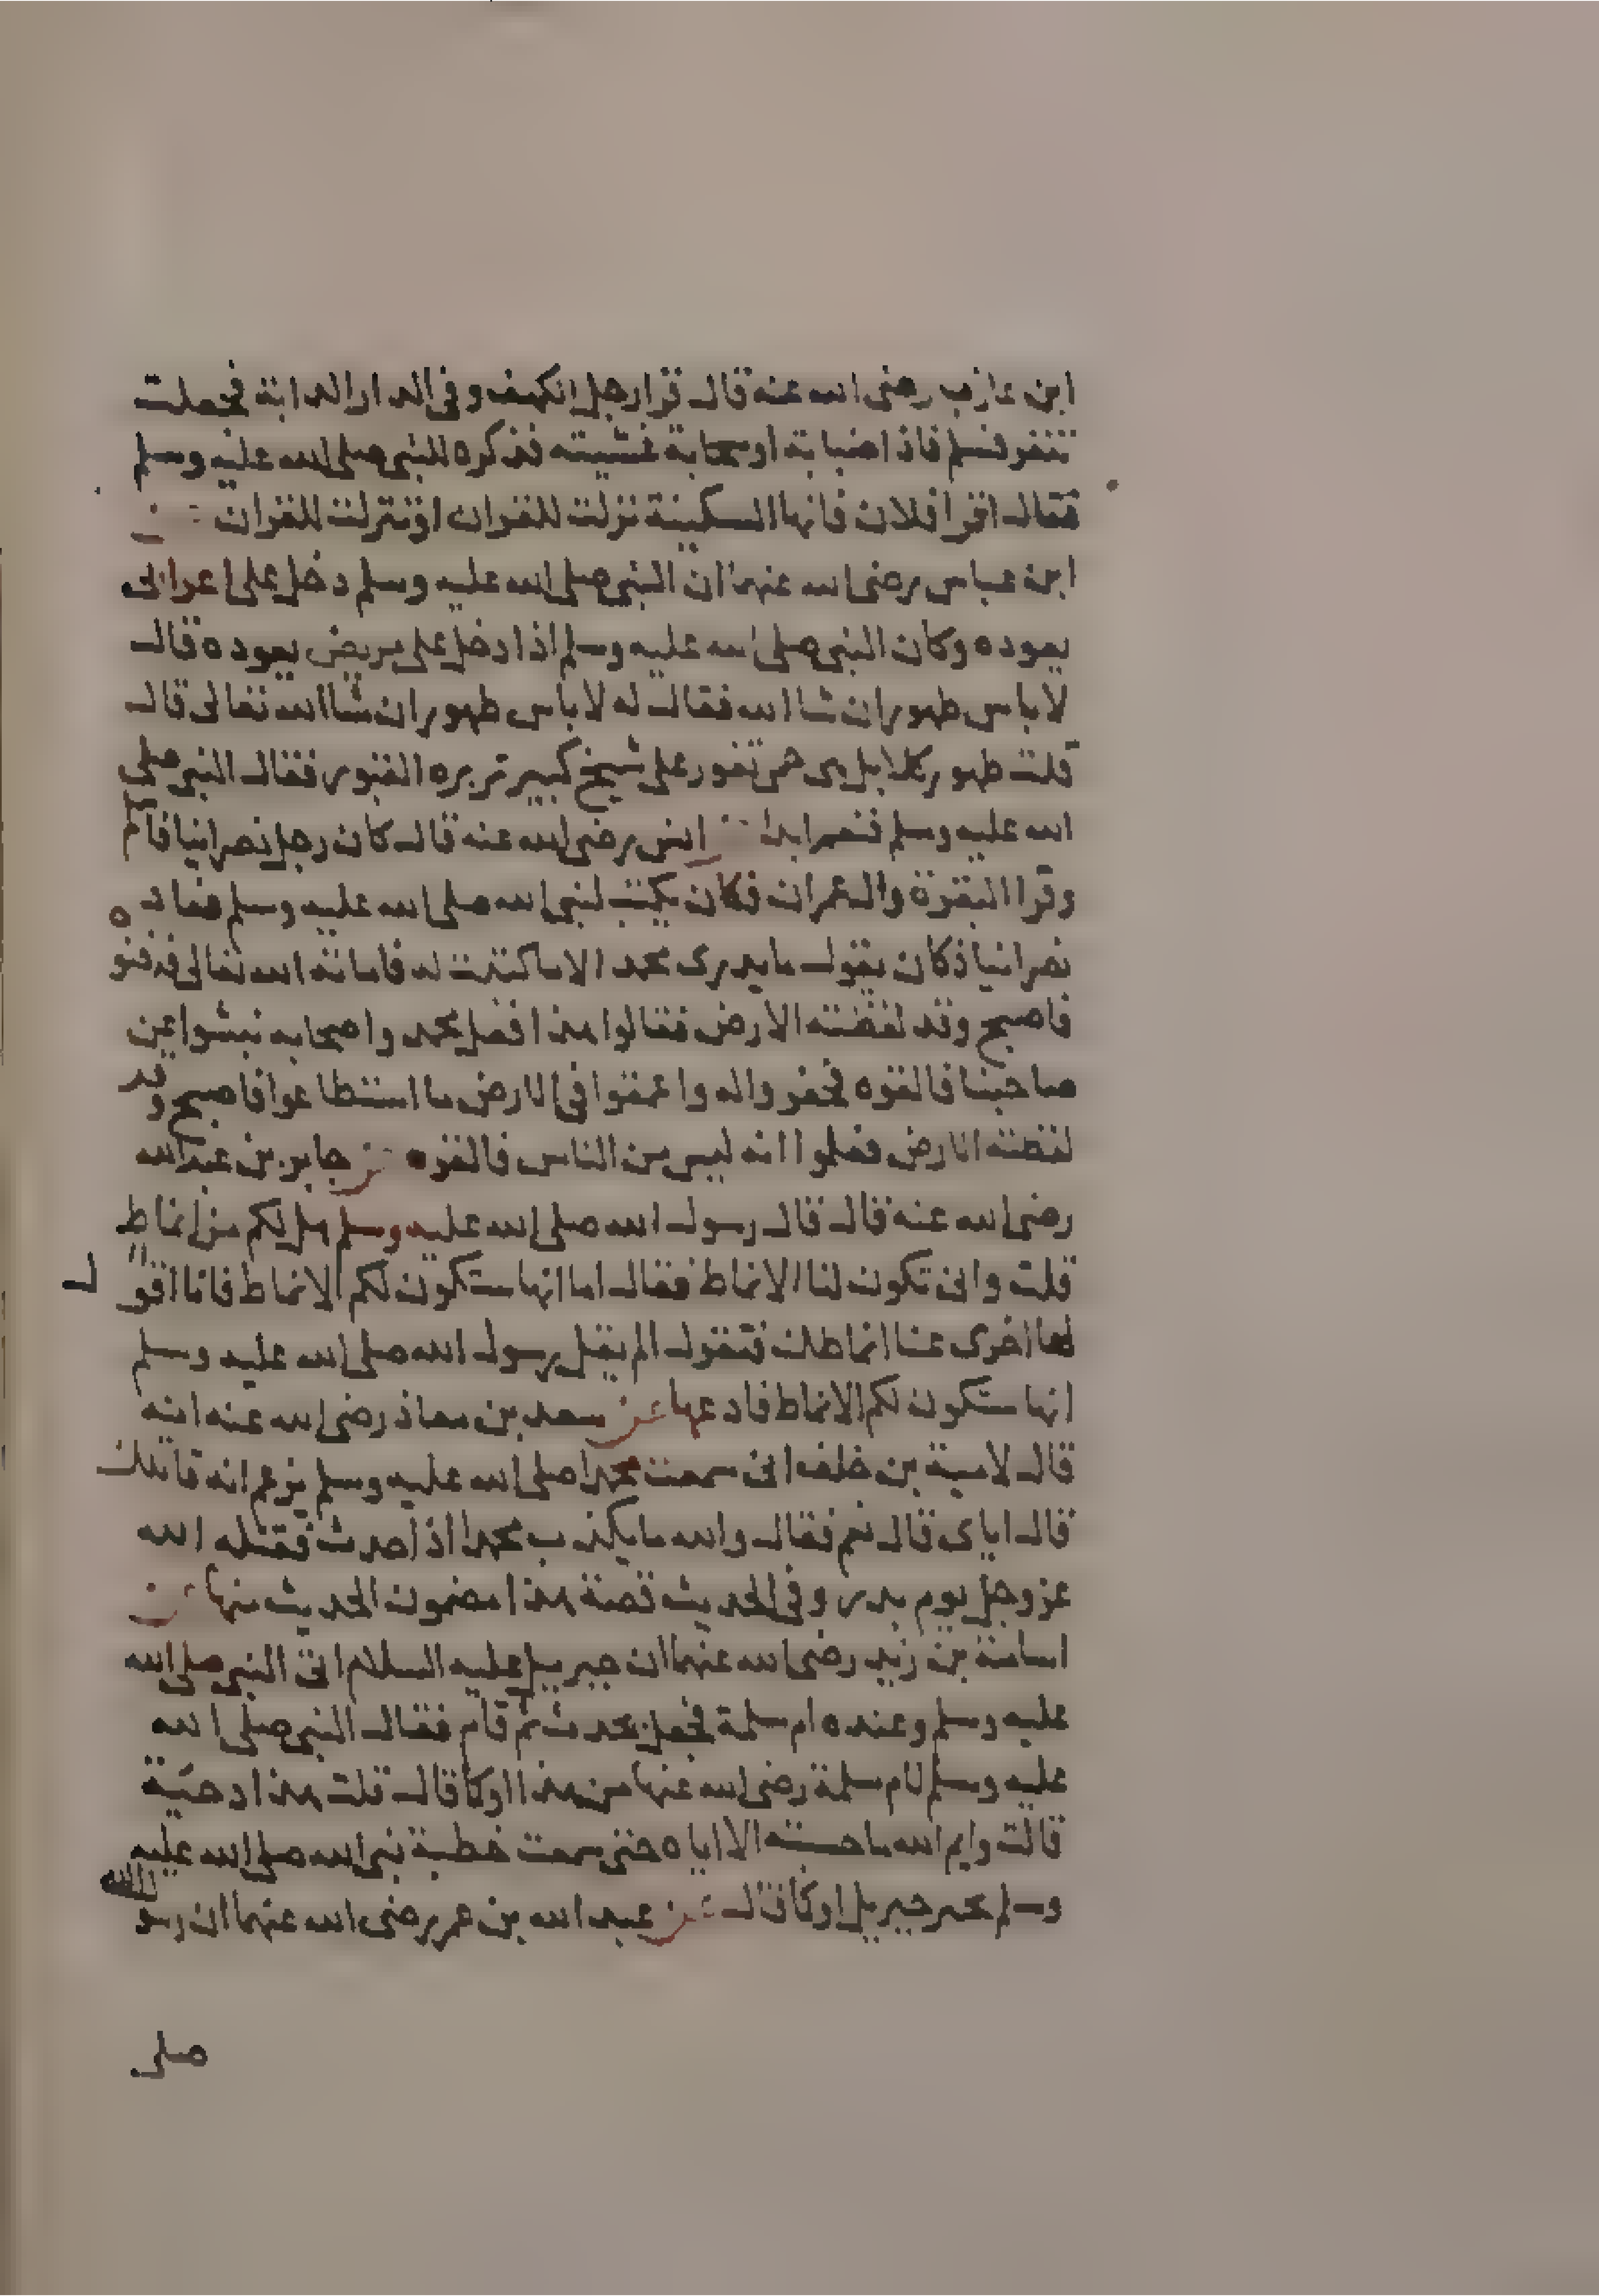 ابن عازب رضى الله عنه قال قرا رجل الكهف وفى الدار الدابة فجعلت
تنفر فسلم فاذا ضبابة او سحابة غشيته فذكره للنبى صلى الله عليه وسلم
فقال اقرا فلان فانها السكينة نزلت للقران او تنزلت للقران عن
ابن عباس رضى الله عنهما ان النبى صلى الله عليه وسلم دخل على اعرابى
يعوده وكان النبى صلى الله عليه وسلم اذا دخل على مريض يعوده قال
لا باس طهور ان شا الله فقال له لا باس طهور ان شا الله تعالى قال
قلت طهور كلا بل هى حمى تفور على شيخ كبير تزيره القبور فقال النبى صلى
الله عليه وسلم فنعم اذا عن انس رضى الله عنه قال كان رجل نصرانيا فاسلم
وقرا البقرة وال عمران فكان يكتب لنبى الله صلى الله عليه وسلم فعاد
نصرانيا فكان يقول ما يدرى محمد الا ما كتبت له فاماته الله تعالى فدفنوه
فاصبح وقد لفظته الارض فقالوا هذا فعل محمد واصحابه نبشوا عن
صاحبنا فالقوه فحفروا له واعمقوا فى الارض ما استطاعوا فاصبح وقد
لفظته الارض فعلموا انه ليس من الناس فالقوه عن جابر بن عبد الله
رضى الله عنه قال قال رسول الله صلى الله عليه وسلم هل لكم من انماط
قلت وانى تكون لنا الانماط فقال اما انها ستكون لكم الانماط فانا اقول
لها اخرى عنا انماطك فتقول الم يقل رسول الله صلى الله عليه وسلم
انها ستكون لكم الانماط فادعها عن سعد بن معاذ رضى الله عنه انه
قال لامية بن خلف انى سمعت محمدا صلى الله عليه وسلم يزعم انه قاتلك
قال اياى قال نعم فقال والله ما يكذب محمدا اذا حدث فقتله الله
عز وجل يوم بدر وفى الحديث قصة هذا مضمون الحديث منها عن
اسامة بن زيد رضى الله عنهما ان جبريل عليه السلام اتى النبى صلى الله
عليه وسلم وعنده ام سلمة فجعل يحدث ثم قام فقال النبى صلى الله
عليه وسلم لام سلمة رضى الله عنها من هذا او كما قال قلت هذا دحية
قالت وايم الله ما حسبته الا اياه حتى سمعت خطبة نبى الله صلى الله عليه
وسلم بخبر جبريل او كما قال عن عبد الله بن عمر رضى الله عنهما ان رسول الله
صلى